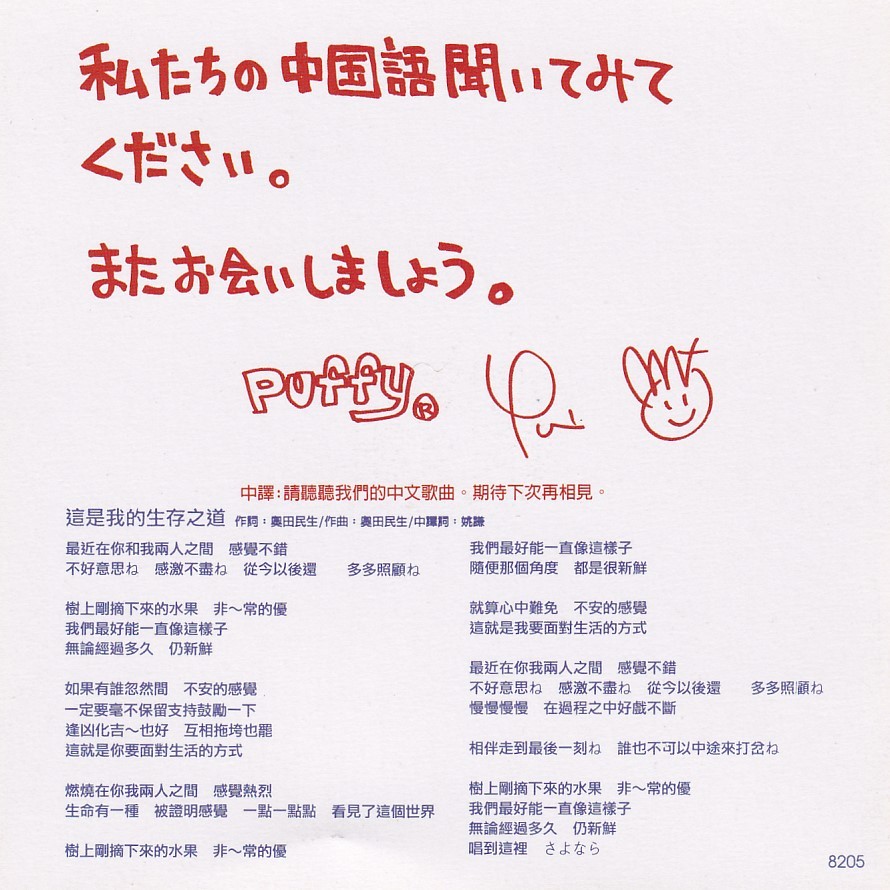 私たちの中国語聞いてみて
ください。
またお会いしましょう。
puffy® Yumi
中譯:請聽聽我們的中文歌曲。期待下次再相見。
這是我的生存之道 作詞：奧田民生/作曲：奧田民生/中譯詞：姚謙
最近在你和我兩人之間　感覺不錯
不好意思ね　感激不盡ね　從今以後還　　多多照顧ね
樹上剛摘下來的水果　非～常的優
我們最好能一直像這樣子
無論經過多久　仍新鮮
如果有誰忽然間　不安的感覺
一定要毫不保留支持鼓勵一下
逢凶化吉～也好　互相拖垮也罷
這就是你要面對生活的方式
燃燒在你我兩人之間　感覺熱烈
生命有一種　被證明感覺　一點一點點　看見了這個世界
樹上剛摘下來的水果　非～常的優
我們最好能一直像這樣子
隨便那個角度　都是很新鮮
就算心中難免　不安的感覺
這就是我要面對生活的方式
最近在你我兩人之間　感覺不錯
不好意思ね　感激不盡ね　從今以後還　　多多照顧ね
慢慢慢慢　在過程之中好戲不斷
相伴走到最後一刻ね　誰也不可以中途來打岔ね
樹上剛摘下來的水果　非～常的優
我們最好能一直像這樣子
無論經過多久　仍新鮮
唱到這裡　さよなら
8205